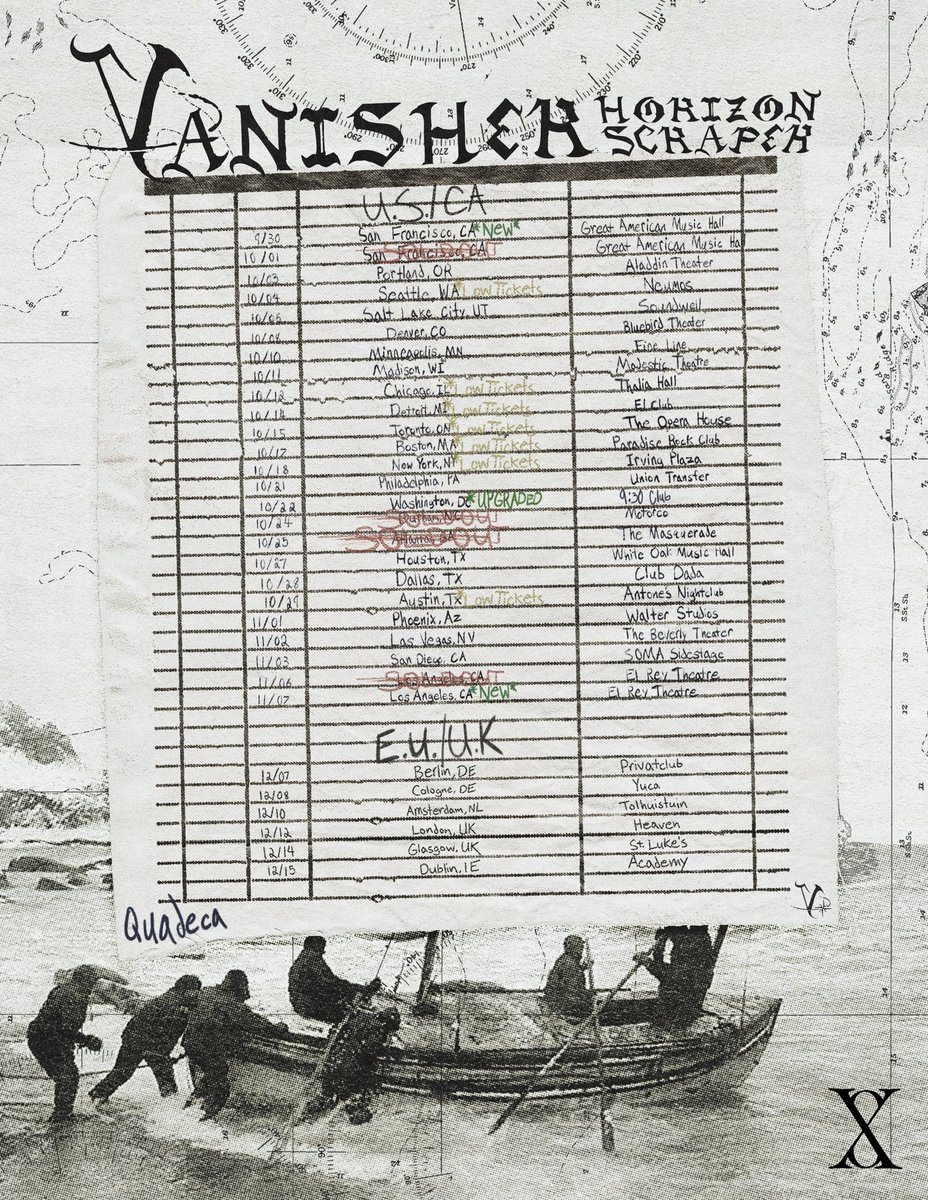 VANISHER HORIZON SCRAPER
U.S./CA
9/30 San Francisco, CA *New* Great American Music Hall
10/01 San Francisco, CA SOLD OUT Great American Music Hall
10/03 Portland, OR Aladdin Theater
10/04 Seattle, WA *Low Tickets Neumos
10/06 Salt Lake City, UT Soundwell
10/08 Denver, CO Bluebird Theater
10/10 Minneapolis, MN Fine Line
10/11 Madison, WI Majestic Theatre
10/12 Chicago, IL *Low Tickets Thalia Hall
10/14 Detroit, MI *Low Tickets El Club
10/15 Toronto, ON *Low Tickets The Opera House
10/17 Boston, MA *Low Tickets Paradise Rock Club
10/18 New York, NY *Low Tickets Irving Plaza
10/21 Philadelphia, PA Union Transfer
10/22 Washington, DC *UPGRADED 9:30 Club
10/24 Durham, NC SOLD OUT Motorco
10/25 Atlanta, GA SOLD OUT The Masquerade
10/27 Houston, TX White Oak Music Hall
10/28 Dallas, TX Club Dada
10/29 Austin, Tx *Low Tickets Antone's Nightclub
11/01 Phoenix, Az Walter Studios
11/02 Las Vegas, NV The Beverly Theater
11/03 San Diego, CA SOMA Sidestage
11/06 Los Angeles, CA SOLD OUT El Rey Theatre
11/07 Los Angeles, CA *New* El Rey Theatre
E.U./U.K
12/07 Berlin, DE Privatclub
12/08 Cologne, DE Yuca
12/10 Amsterdam, NL Tolhuistuin
12/12 London, UK Heaven
12/14 Glasgow, UK St. Luke's
12/15 Dublin, IE Academy
Quadeca